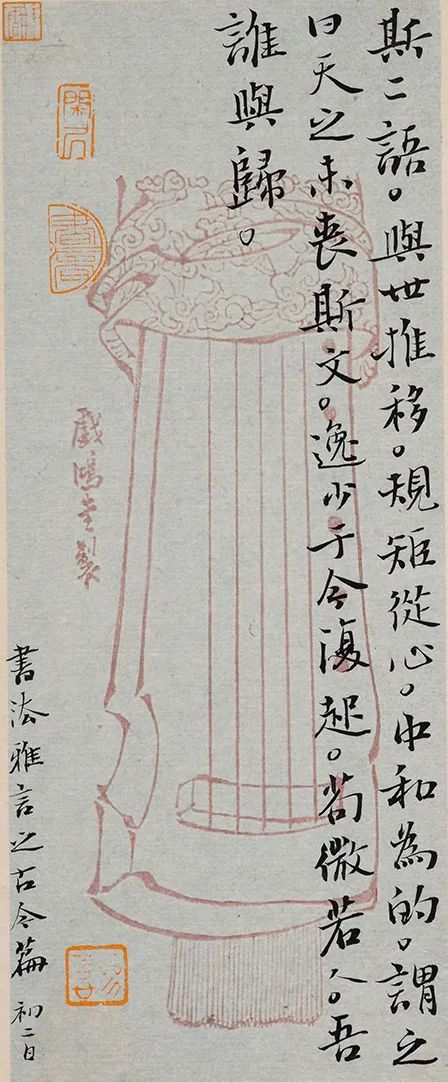 斯二語。與世推移。規矩從心。中和為的。謂之
曰天之未喪斯文。逸少于今復起。苟微若人。吾
誰與歸。
戲鴻堂製
書法雅言之古今篇 初二日